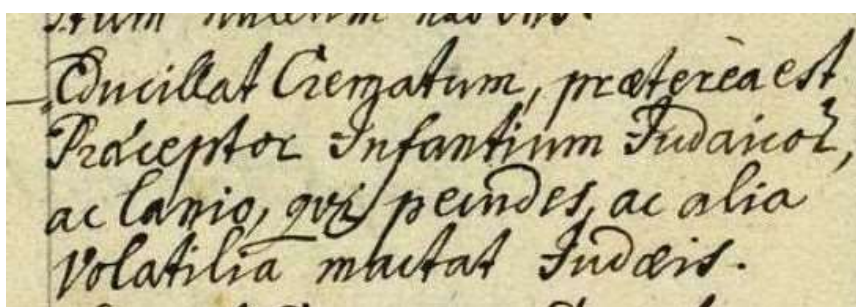 Educillat Crematum, præterèa est
Præceptor Infantium Judaicor,
ac lanio, qvi pecudes, ac alia
Volatilia mactat Judæis.